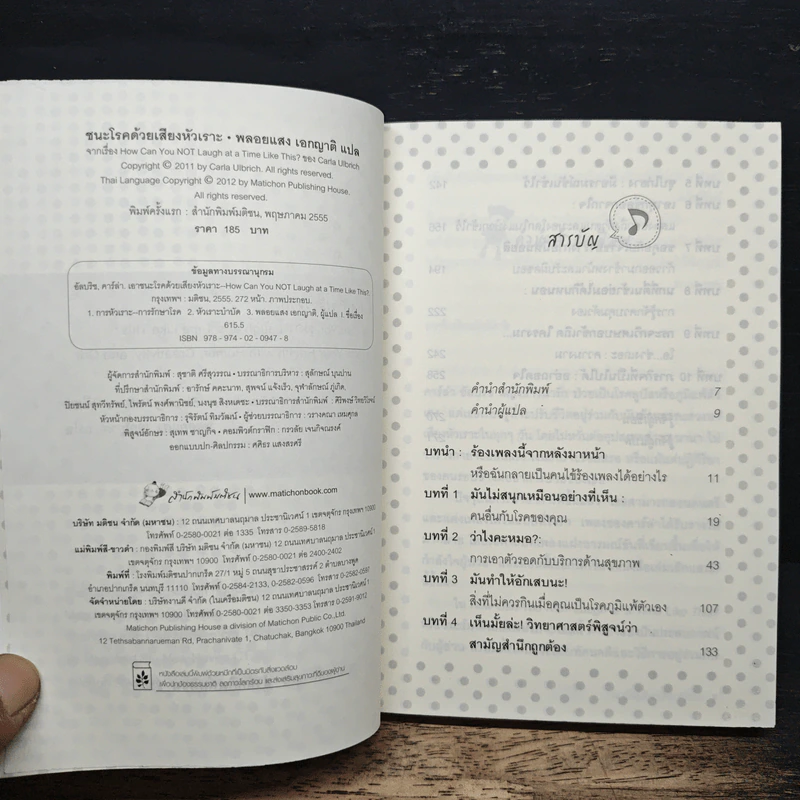 ชนะโรคด้วยเสียงหัวเราะ • พลอยแสง เอกญาติ แปล
จากเรื่อง How Can You NOT Laugh at a Time Like This? ของ Carla Ulbrich
Copyright © 2011 by Carla Ulbrich. All rights reserved.
Thai Language Copyright © 2012 by Matichon Publishing House.
All rights reserved.
พิมพ์ครั้งแรก : สำนักพิมพ์มติชน, พฤษภาคม 2555
ราคา 185 บาท
ข้อมูลทางบรรณานุกรม
อัลบริช, คาร์ล่า. เอาชนะโรคด้วยเสียงหัวเราะ--How Can You NOT Laugh at a Time Like This?.
กรุงเทพฯ : มติชน, 2555. 272 หน้า. ภาพประกอบ.
1. การหัวเราะ--การรักษาโรค 2. หัวเราะบำบัด 3. พลอยแสง เอกญาติ, ผู้แปล I. ชื่อเรื่อง
615.5
ISBN 978 - 974 - 02 - 0947 - 8
ผู้จัดการสำนักพิมพ์ : สุชาติ ศรีสุวรรณ • บรรณาธิการบริหาร : สุลักษณ์ บุนปาน
ที่ปรึกษาสำนักพิมพ์ : อารักษ์ คคะนาท, สุพจน์ แจ้งเร็ว, จุฬาลักษณ์ ภู่เกิด,
ปิยชนน์ สุทวีทรัพย์, ไพรัตน์ พงศ์พานิชย์, นงนุช สิงหเดชะ • บรรณาธิการสำนักพิมพ์ : ศิริพงษ์ วิทยวิโรจน์
หัวหน้ากองบรรณาธิการ : รุจิรัตน์ ทิมวัฒน์ • ผู้ช่วยบรรณาธิการ : วรางคณา เหมศุกล
พิสูจน์อักษร : สุเทพ ชาญกิจ • คอมพิวต์กราฟิก : กรวลัย เจนกิจณรงค์
ออกแบบปก-ศิลปกรรม : ศศิธร แสงสรศรี
สำนักพิมพ์มติชน | www.matichonbook.com
บริษัท มติชน จำกัด (มหาชน) : 12 ถนนเทศบาลนฤมาล ประชานิเวศน์ 1 เขตจตุจักร กรุงเทพฯ 10900
โทรศัพท์ 0-2580-0021 ต่อ 1335 โทรสาร 0-2589-5818
แม่พิมพ์สี-ขาวดำ : กองพิมพ์สี บริษัท มติชน จำกัด (มหาชน) 12 ถนนเทศบาลนฤมาล ประชานิเวศน์ 1
เขตจตุจักร กรุงเทพฯ 10900 โทรศัพท์ 0-2580-0021 ต่อ 2400-2402
พิมพ์ที่ : โรงพิมพ์มติชนปากเกร็ด 27/1 หมู่ 5 ถนนสุขาประชาสรรค์ 2 ตำบลบางพูด
อำเภอปากเกร็ด นนทบุรี 11110 โทรศัพท์ 0-2584-2133, 0-2582-0596 โทรสาร 0-2582-0597
จัดจำหน่ายโดย : บริษัทงานดี จำกัด (ในเครือมติชน) 12 ถนนเทศบาลนฤมาล ประชานิเวศน์ 1
เขตจตุจักร กรุงเทพฯ 10900 โทรศัพท์ 0-2580-0021 ต่อ 3350-3353 โทรสาร 0-2591-9012
Matichon Publishing House a division of Matichon Public Co.,Ltd.
12 Tethsabannarueman Rd., Prachanivate 1, Chatuchak, Bangkok 10900 Thailand
หนังสือเล่มนี้พิมพ์ด้วยหมึกที่เป็นมิตรกับสิ่งแวดล้อม
เพื่อปกป้องธรรมชาติ ลดภาวะโลกร้อน และส่งเสริมสุขภาวะที่ดีของผู้อ่าน
สารบัญ
คำนำสำนักพิมพ์ 7
คำนำผู้แปล 9
บทนำ : ร้องเพลงนี้จากหลังมาหน้า
หรือฉันกลายเป็นคนไข้ร้องเพลงได้อย่างไร 11
บทที่ 1 มันไม่สนุกเหมือนอย่างที่เห็น :
คนอื่นกับโรคของคุณ 19
บทที่ 2 ว่าไงคะหมอ?:
การเอาตัวรอดกับบริการด้านสุขภาพ 43
บทที่ 3 มันทำให้อักเสบนะ!
สิ่งที่ไม่ควรกินเมื่อคุณเป็นโรคภูมิแพ้ตัวเอง 107
บทที่ 4 เห็นมั้ยล่ะ! วิทยาศาสตร์พิสูจน์ว่า
สามัญสำนึกถูกต้อง 133